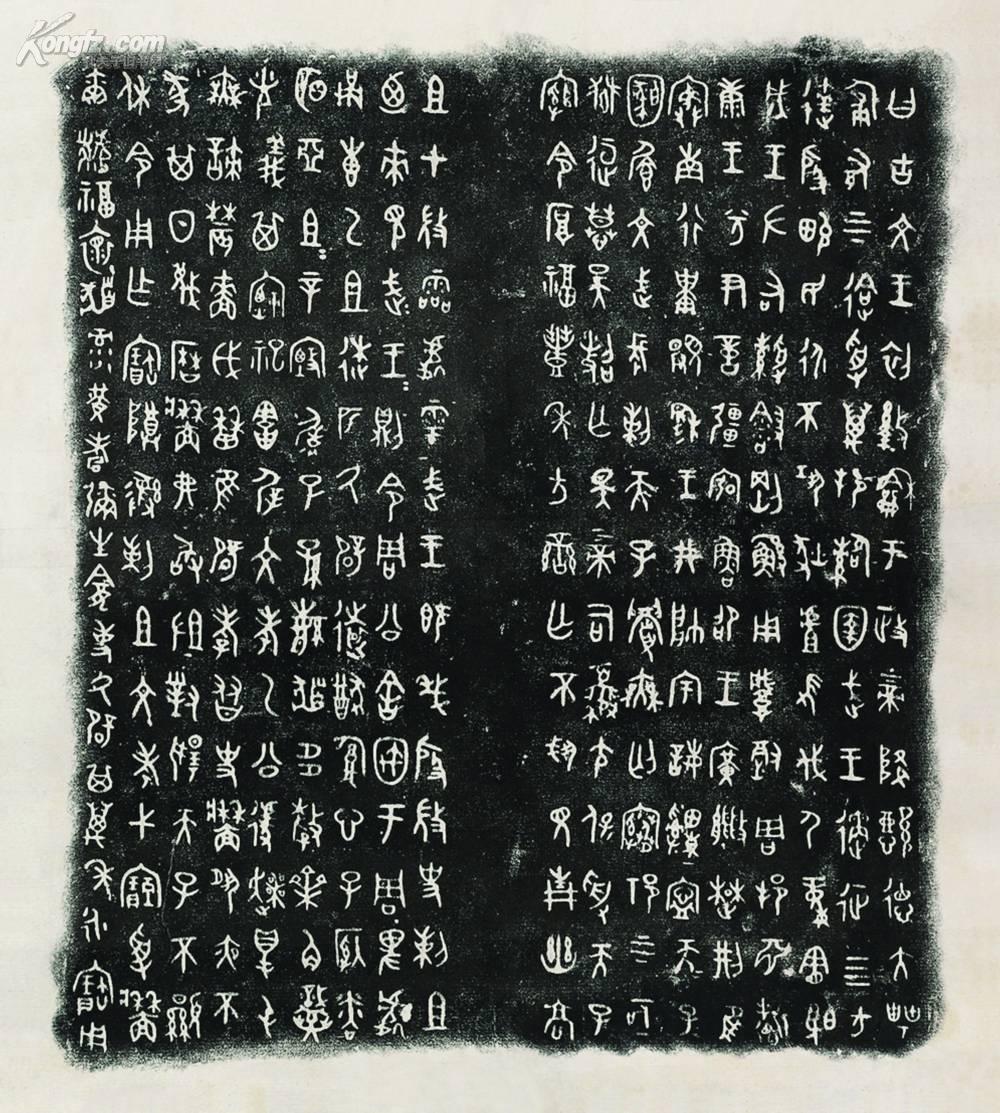 曰古文王初盭龢于政上帝降懿德大甹
匍有上下迨受萬邦䚄圉武王遹征四方
達殷畯民永不巩狄虘𢼸伐尸童憲聖
成王左右剛鯀用肇徹周邦淵哲
康王兮尹億疆宏魯卲王廣能楚荊隹
南行祗顯穆王井帥宇誨申寧天子
天子文武長剌天子眉無匄祁上下
亟獄慕昊照亡斁上帝司夒尢保受天子
綰令厚福豐年方蠻亡不見青幽高
且才微霝處雩武王既𢦏殷微史剌且
廼來見武王武王則令周公舍㝢于周卑處
甬叀乙且匹氒辟遠猷腹心子明
亞且且辛毓子孫繁多釐角光
義其禋祀害屖文考乙公遽爽得屯無
諫農嗇戉曆隹辟孝友史牆夙夜不
㒸其日蔑曆牆弗敢沮對揚天子不顯
休令用乍寶尊彝剌且文考弋受牆
爾福懷彔黃耇彌生龕事氒辟其萬年永寶用
Kongfz.com